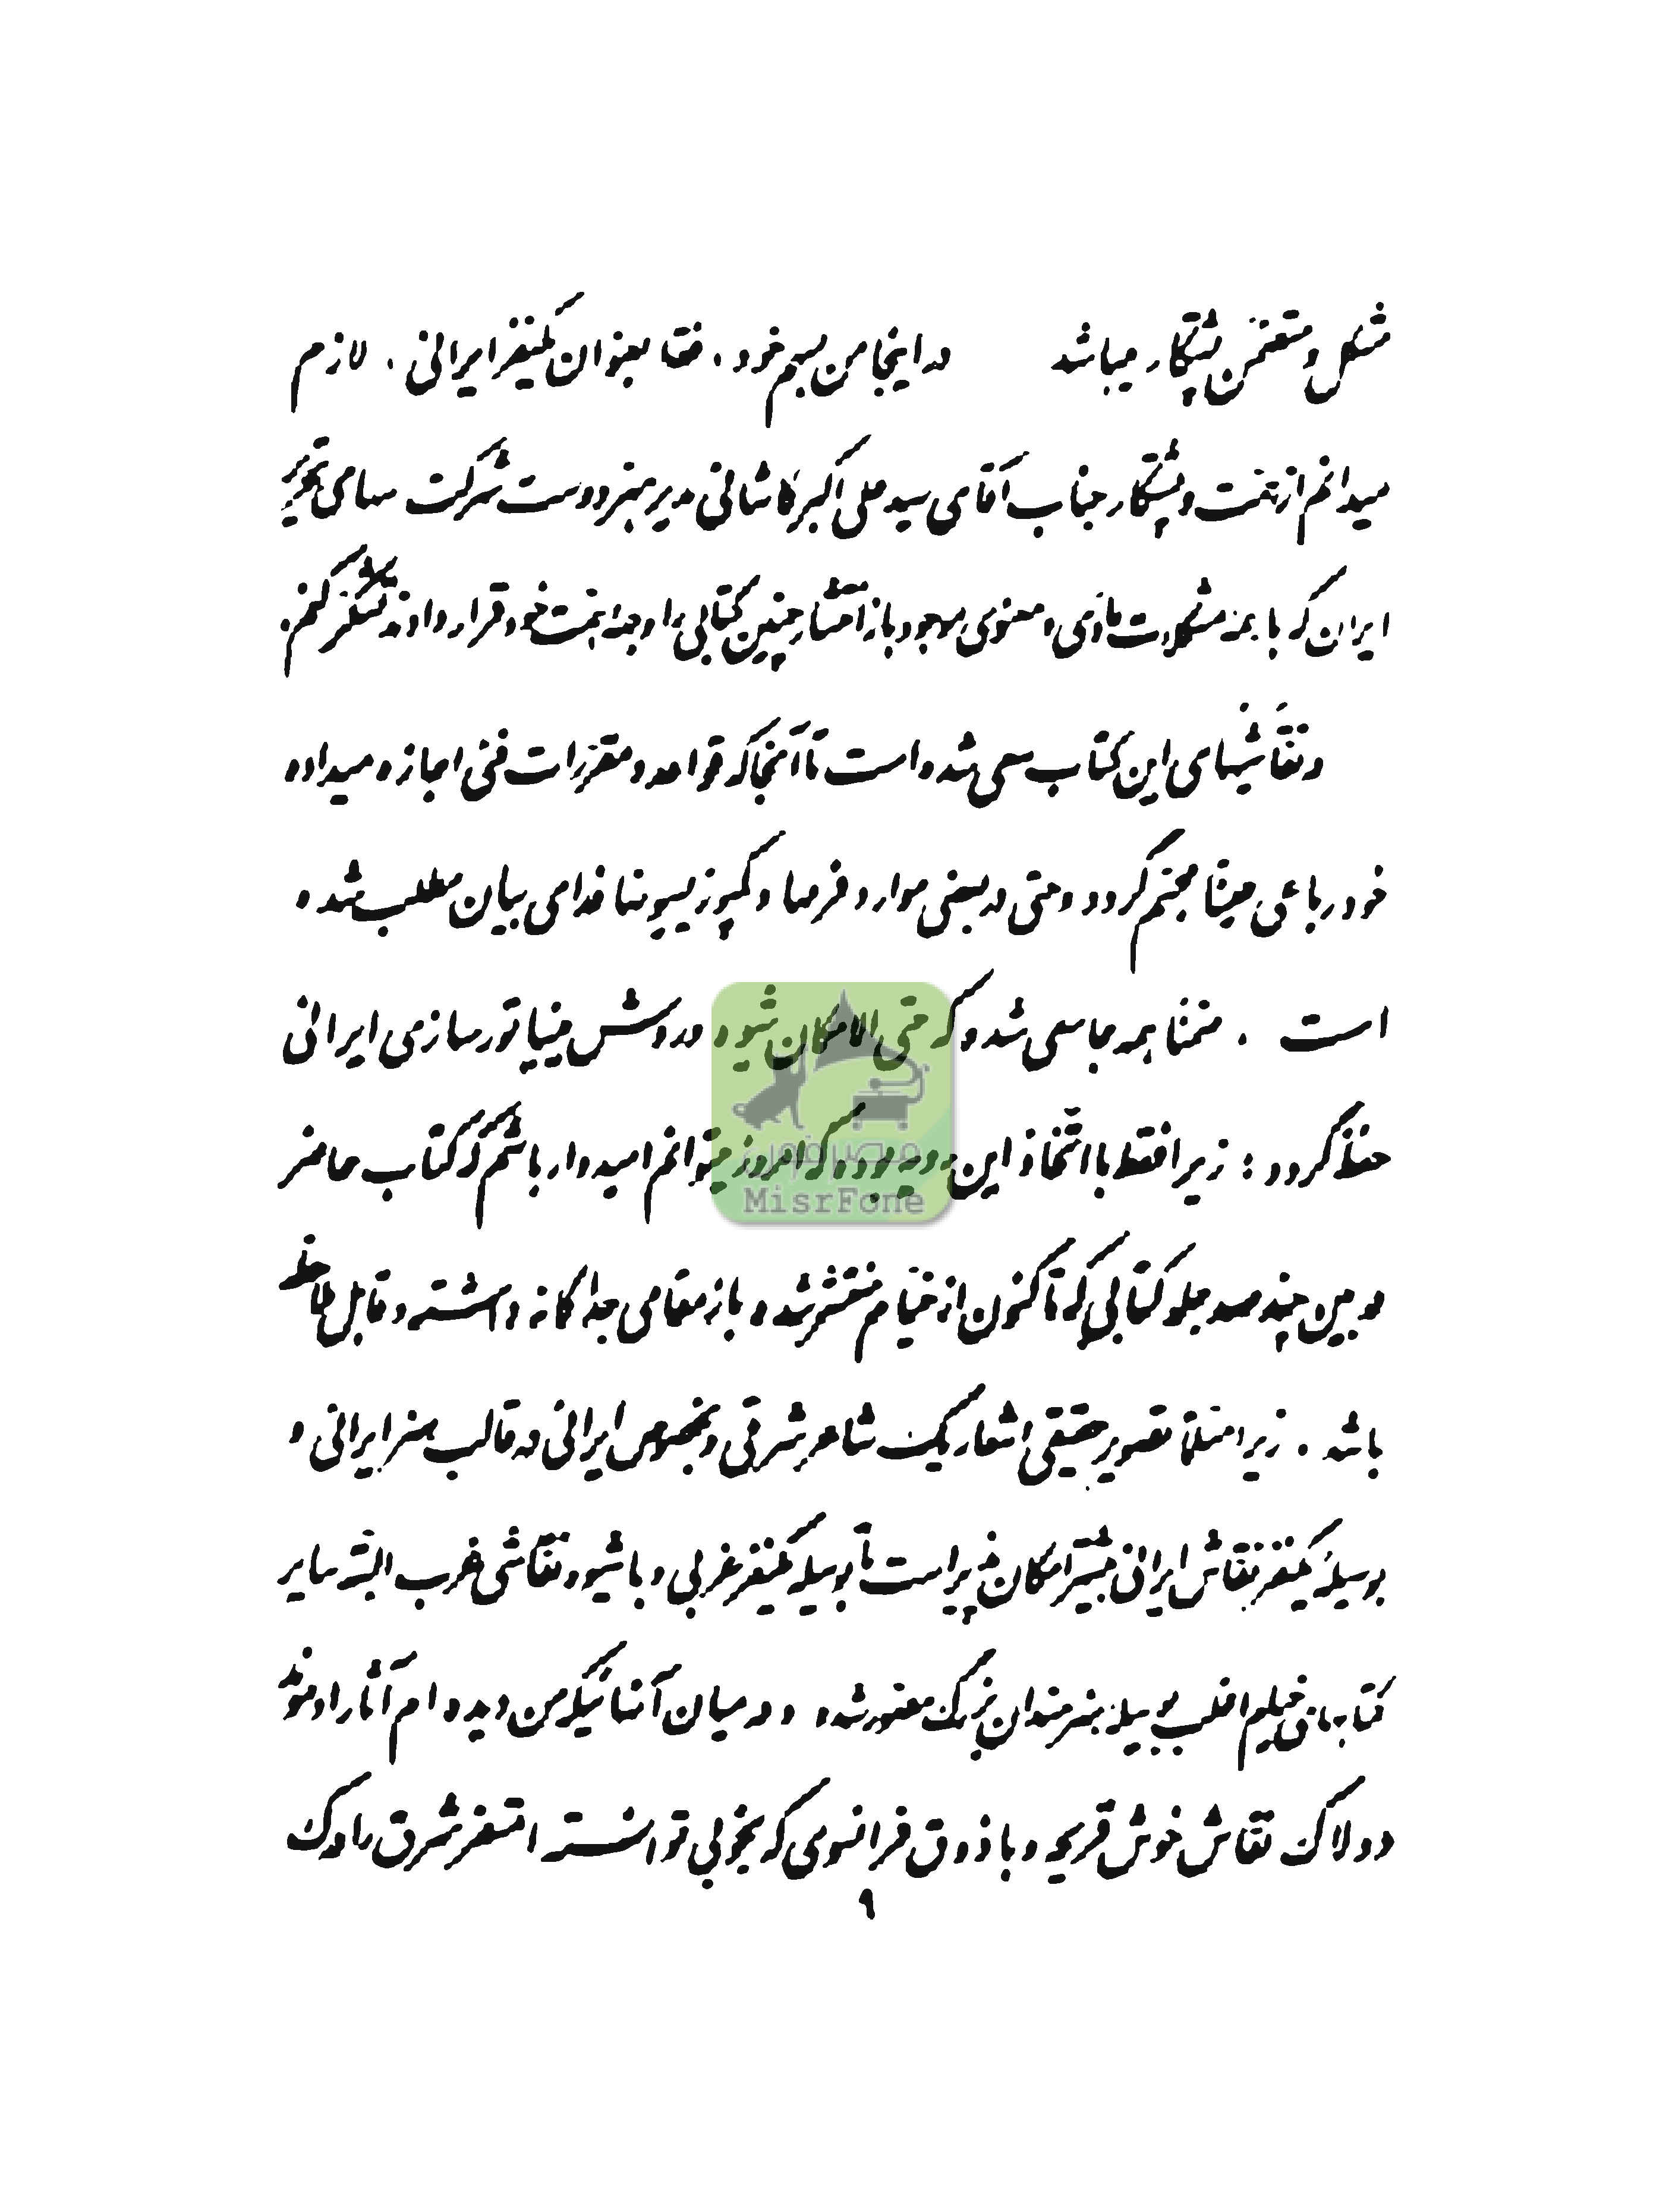 مشکل و متضمن پشتکار میباشد در اینجا من بسهم خود، فقط بعنوان یکنفر ایرانی، لازم
میدانم از همت و پشتکار جناب آقای سید علی اکبر کاشانی مدیر هنر دوست شرکت سهامی تحریر
ایران که با همه مشکلات مادی و معنوی موجود باز انتشار چنین کتابی را وجهه همت خود قرار داده‌اند تشکر کنم.
در نقاشیهای این کتاب سعی شده است تا آنجا که قواعد و مقررات فنی اجازه میداده
خود رباعی عیناً مجسم گردد و حتی در بعضی موارد فرمها و کمپوزیسیونها فدای بیان مطلب شده
است. ضمناً همه جا سعی شده که حتی الامکان شیوه و روش مینیاتورسازی ایرانی
حفظ گردد؛ زیرا فقط با اتخاذ این رویه بوده که امروز میتوانم امیدوار باشم که کتاب حاضر
در بین چند صد جلد کتابی که تاکنون از خیام منتشر شده باز مقامی جداگانه داشته و قابل ملاحظه
باشد. زیرا مثلاً تصویر حقیقی اشعار یک شاعر شرقی و بخصوص ایرانی در قالب هنر ایرانی و
بوسیلهٔ یکنفر نقاش ایرانی بیشتر امکان پذیر است تا بوسیله یکنفر غربی و با شیوه نقاشی غرب البته سایر
کتابهای خیام اغلب بوسیلهٔ هنرمندان بزرگ مصور شده و در میان آنهائیکه من دیده‌ام آثار ادموند
دولاک نقاش خوش قریحه و با ذوق فرانسوی که بخوبی توانسته اتمسفر شرق را درک
۹
مصرفون
MisrFone